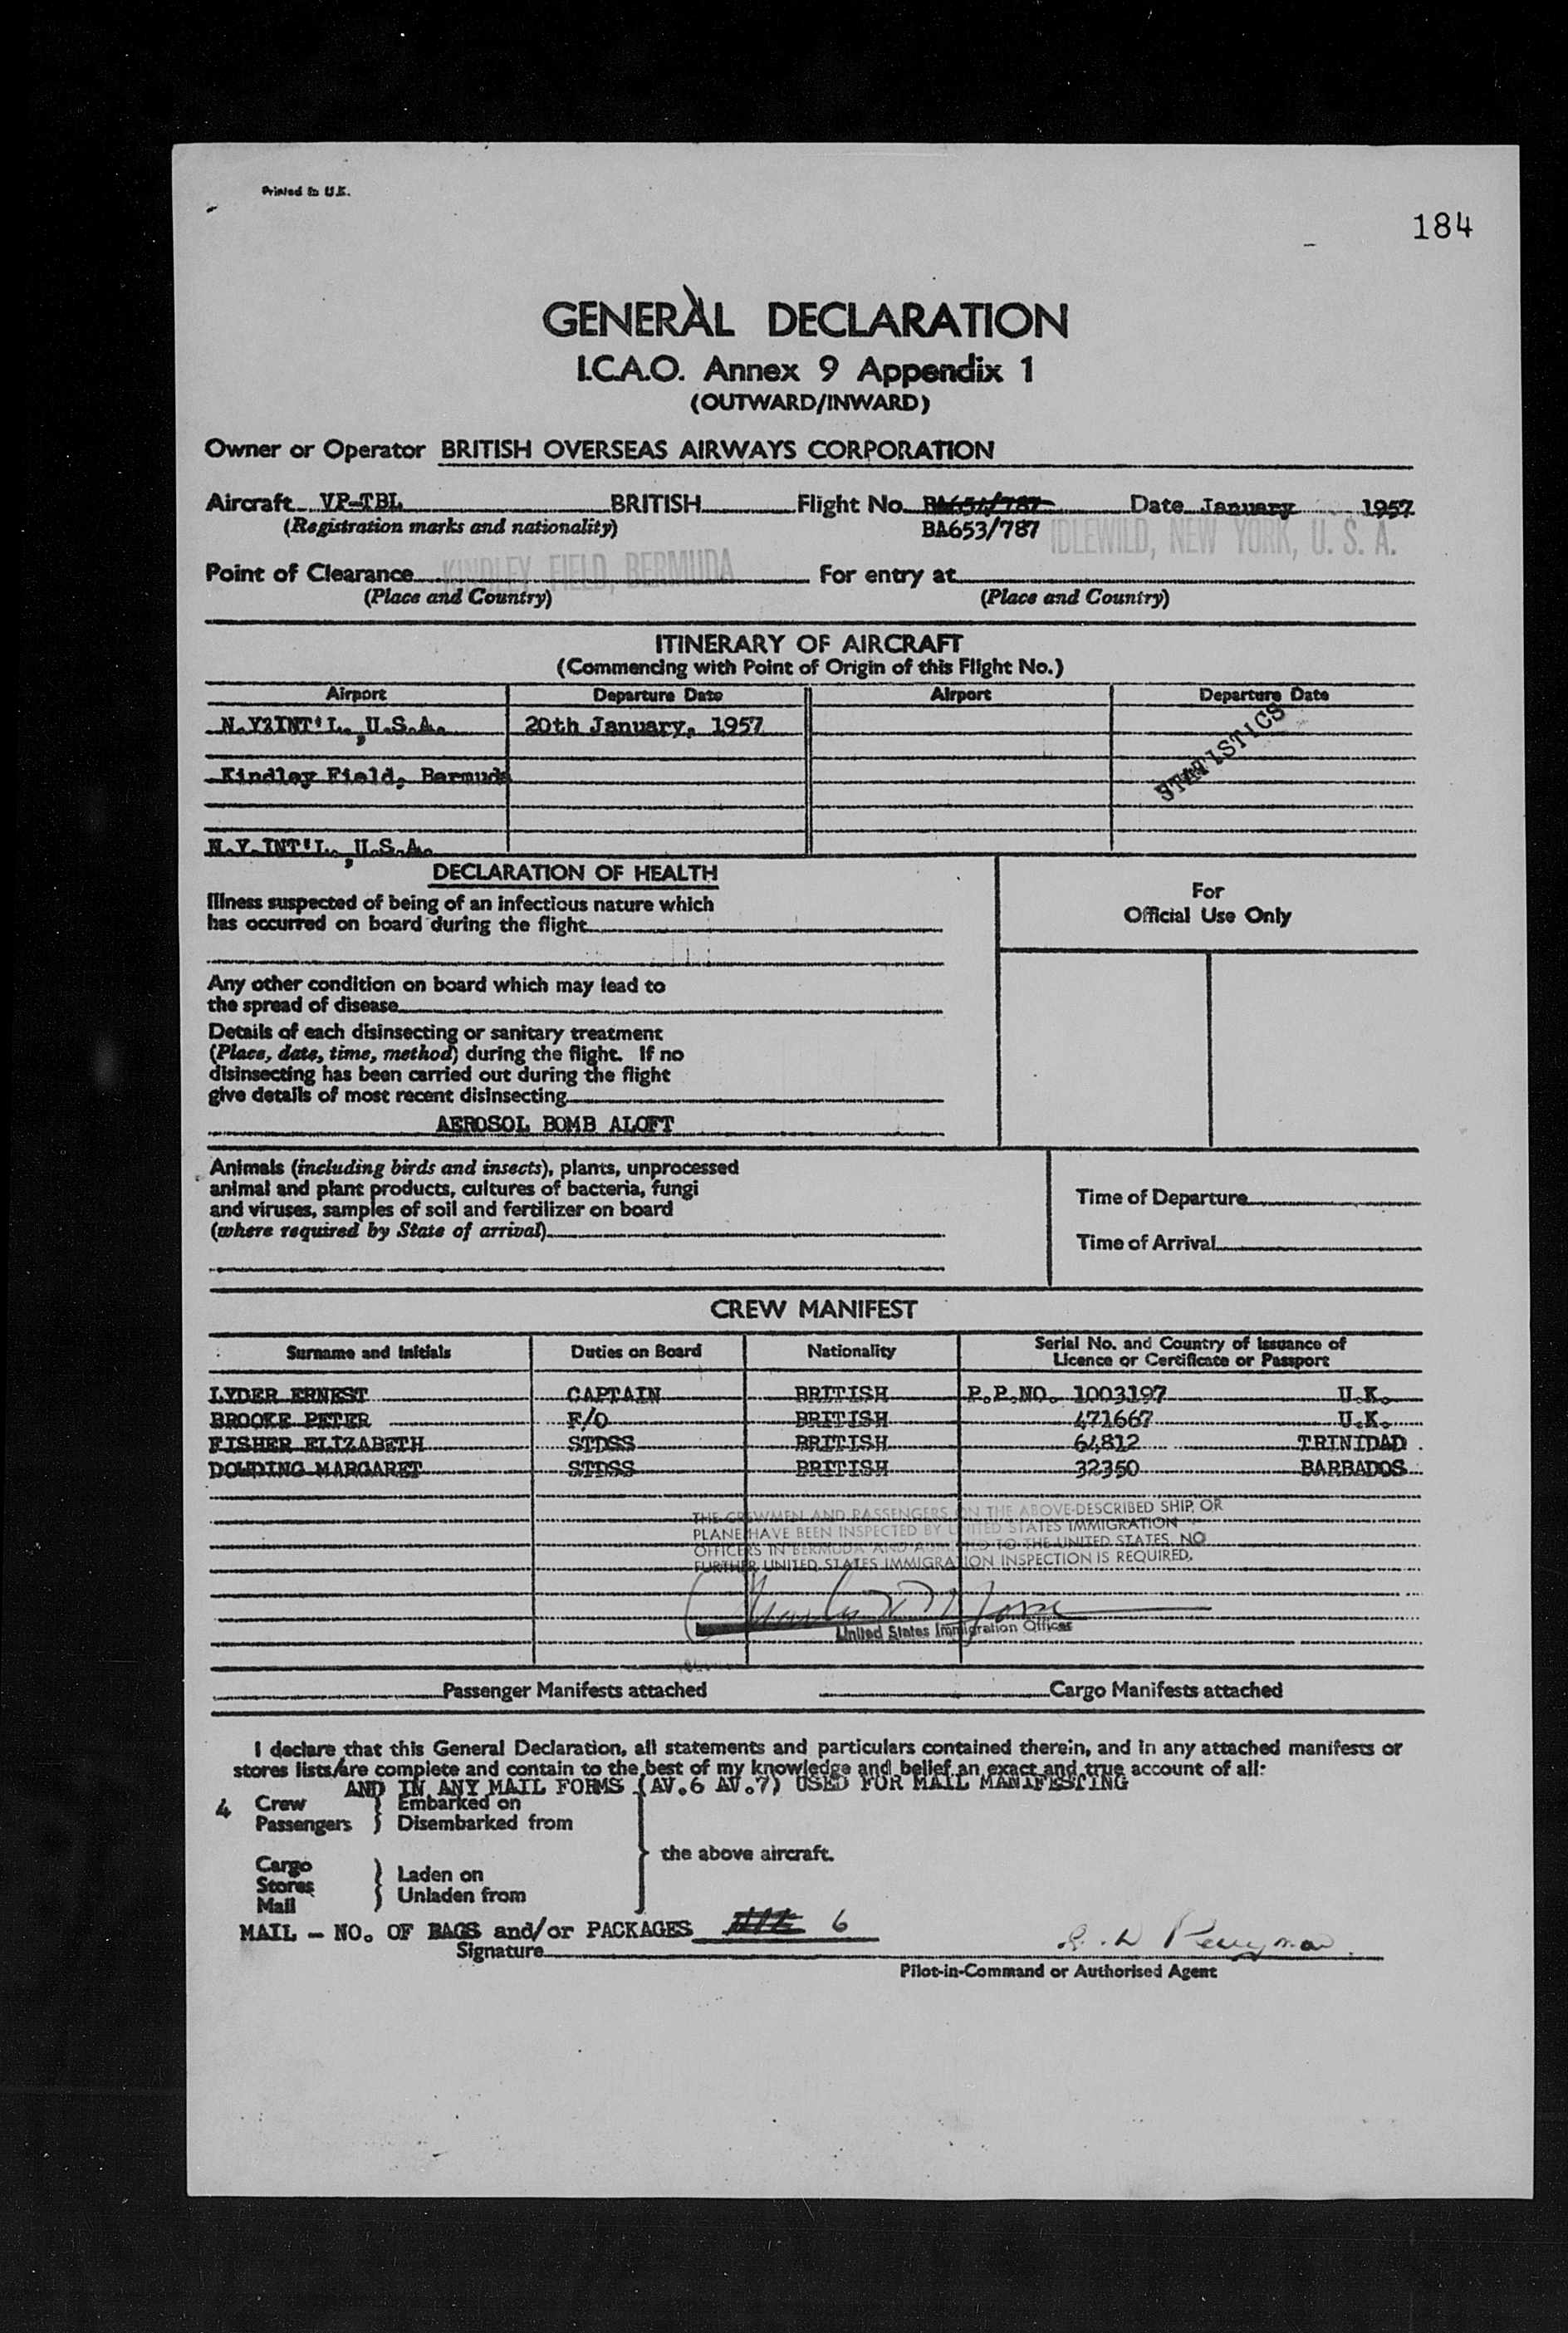 Printed in U.K.
184
GENERAL DECLARATION
I.C.A.O. Annex 9 Appendix 1
(OUTWARD/INWARD)
Owner or Operator BRITISH OVERSEAS AIRWAYS CORPORATION
Aircraft VP-TBL BRITISH Flight No. BA651/787 Date January 1957
(Registration marks and nationality) BA653/787 IDLEWILD, NEW YORK, U. S. A.
Point of Clearance KINDLEY FIELD, BERMUDA For entry at
(Place and Country) (Place and Country)
ITINERARY OF AIRCRAFT
(Commencing with Point of Origin of this Flight No.)
Airport Departure Date Airport Departure Date
N.Y?INT'L., U.S.A. 20th January, 1957
STATISTICS
Kindley Field, Bermuda
N.Y.INT'L., U.S.A.
DECLARATION OF HEALTH
Illness suspected of being of an infectious nature which
has occurred on board during the flight
Any other condition on board which may lead to
the spread of disease
Details of each disinsecting or sanitary treatment
(Place, date, time, method) during the flight. If no
disinsecting has been carried out during the flight
give details of most recent disinsecting
AEROSOL BOMB ALOFT
For
Official Use Only
Animals (including birds and insects), plants, unprocessed
animal and plant products, cultures of bacteria, fungi
and viruses, samples of soil and fertilizer on board
(where required by State of arrival)
Time of Departure
Time of Arrival
CREW MANIFEST
Surname and Initials Duties on Board Nationality Serial No. and Country of Issuance of
Licence or Certificate or Passport
LYDER ERNEST CAPTAIN BRITISH P.P.NO. 1003197 U.K.
BROOKE PETER F/O BRITISH 471667 U.K.
FISHER ELIZABETH STDSS BRITISH 64812 TRINIDAD
DOWDING MARGARET STDSS BRITISH 32350 BARBADOS
THE CREWMEN AND PASSENGERS ON THE ABOVE-DESCRIBED SHIP OR
PLANE HAVE BEEN INSPECTED BY UNITED STATES IMMIGRATION
OFFICERS IN BERMUDA AND ADMITTED TO THE UNITED STATES. NO
FURTHER UNITED STATES IMMIGRATION INSPECTION IS REQUIRED.
United States Immigration Officer
Passenger Manifests attached Cargo Manifests attached
I declare that this General Declaration, all statements and particulars contained therein, and in any attached manifests or
stores lists/are complete and contain to the best of my knowledge and belief an exact and true account of all:
AND IN ANY MAIL FORMS (AV.6 AV.7) USED FOR MAIL MANIFESTING
4 Crew Embarked on
Passengers Disembarked from
the above aircraft.
Cargo
Stores Laden on
Mail Unladen from
MAIL - NO. OF BAGS and/or PACKAGES 6
Signature
Pilot-in-Command or Authorised Agent